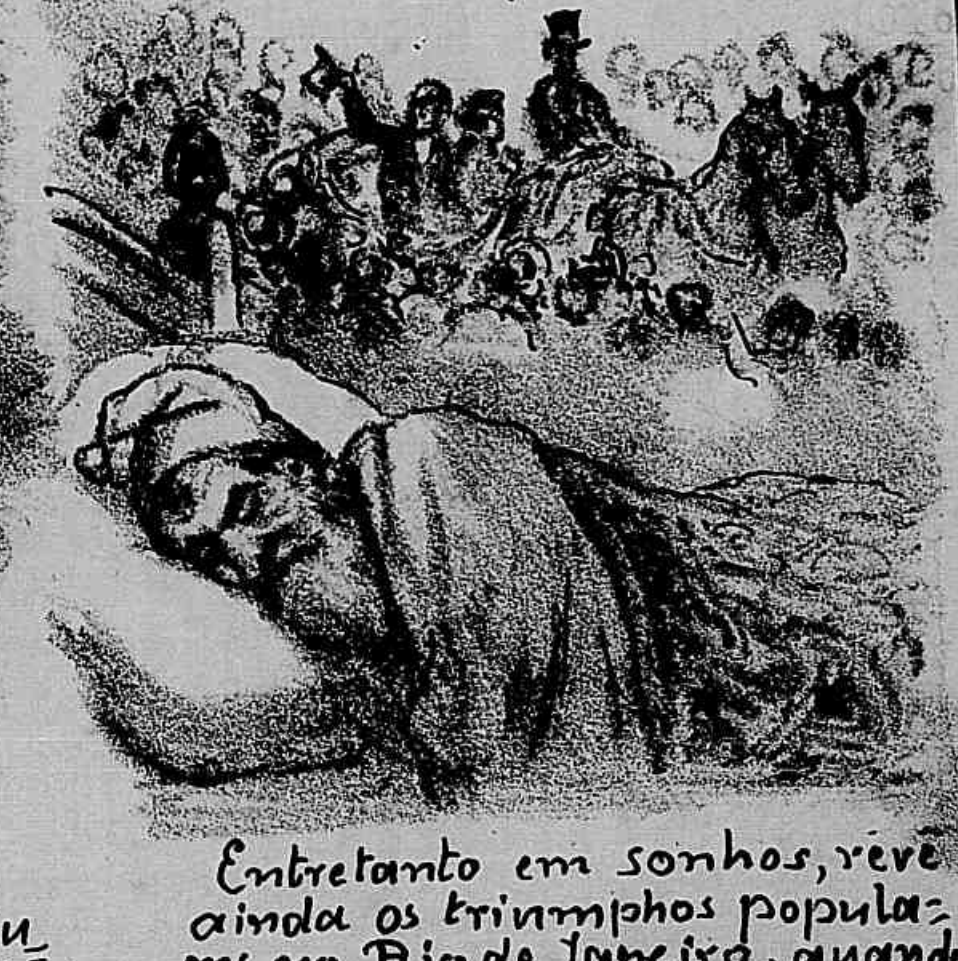 Entretanto em sonhos, revê
ainda os triumphos popula=
Rio de Janeiro, quando